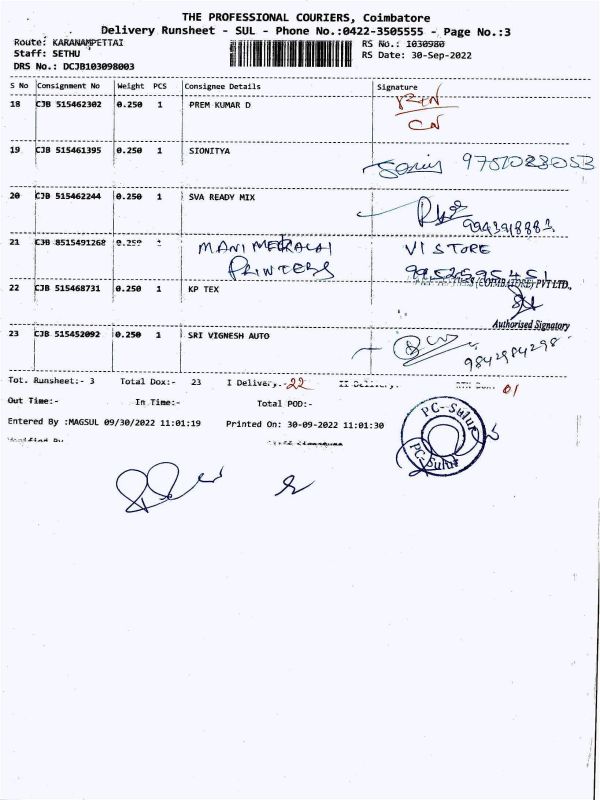 THE PROFESSIONAL COURIERS, Coimbatore
Delivery Runsheet - SUL - Phone No.:0422-3505555 - Page No.:3
Route: KARANAMPETTAI RS No.: 1030980
Staff: SETHU RS Date: 30-Sep-2022
DRS No.: DCJB103098003
S No Consignment No Weight PCS Consignee Details Signature
18 CJB 515462302 0.250 1 PREM KUMAR D RTN
CN
19 CJB 515461395 0.250 1 SIONITYA
20 CJB 515462244 0.250 1 SVA READY MIX
9943918883
21 CJB 8515491268 0.250 1 MANIMEKALAI VI STORE
PRINTERS
22 CJB 515468731 0.250 1 KP TEX (COIMBATORE) PVT LTD.,
Authorised Signatory
23 CJB 515452092 0.250 1 SRI VIGNESH AUTO
9842984298
Tot. Runsheet:- 3 Total Dox:- 23 I Delivery:- 22 II Delivery:- RTN Dox:- 01
Out Time:- In Time:- Total POD:-
Entered By :MAGSUL 09/30/2022 11:01:19 Printed On: 30-09-2022 11:01:30
Verified By
PC-Sulur
PC-Sulur